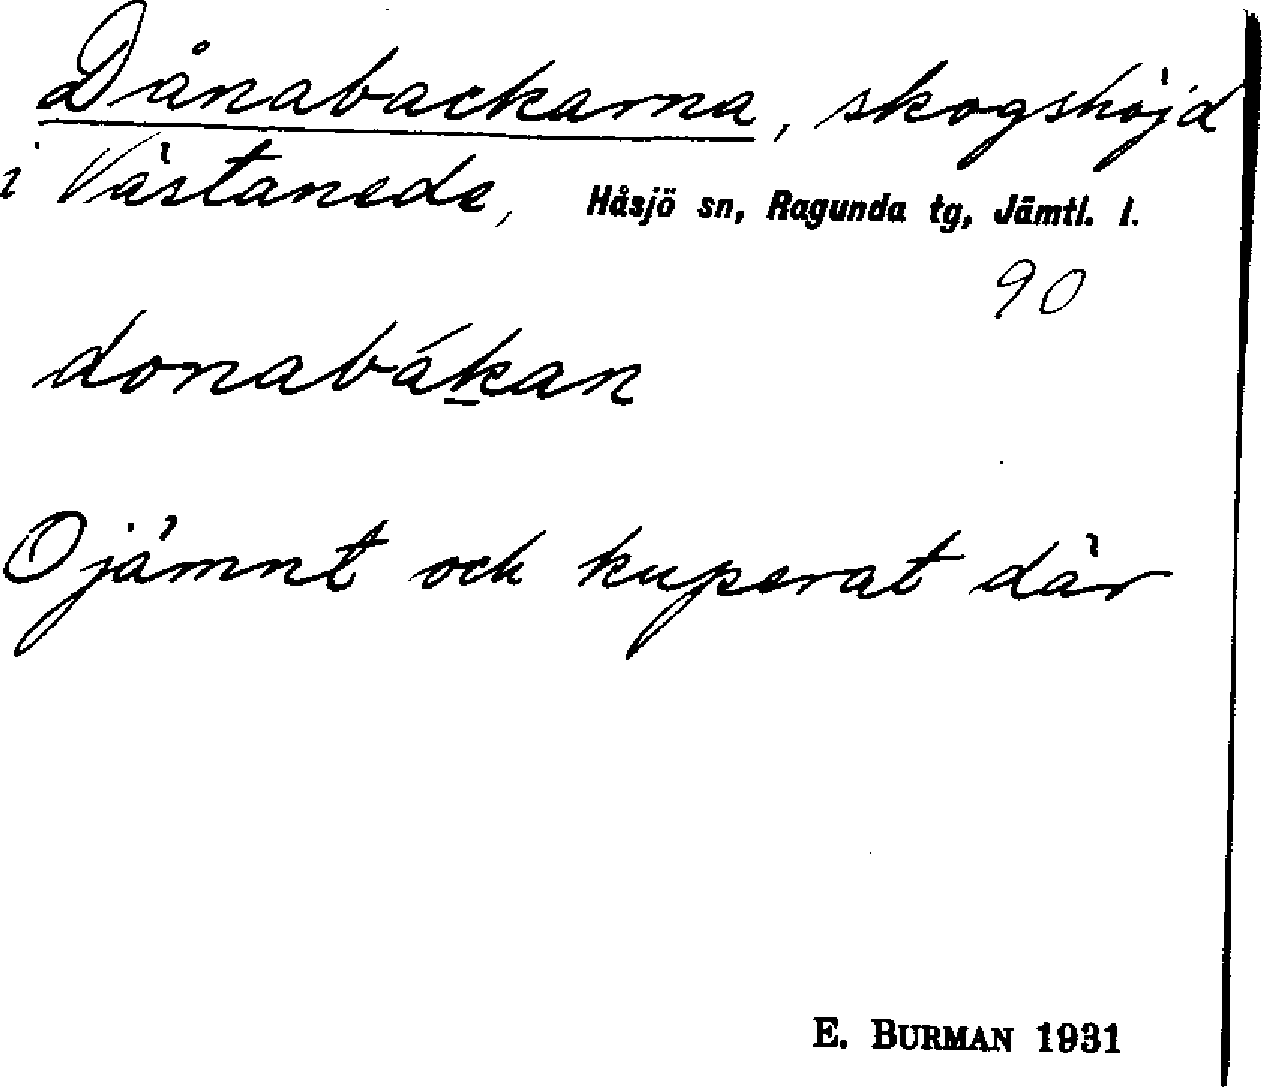 Dånabackarna, skogshöjd
i Västanede, Håsjö sn, Ragunda tg, Jämtl. l.
90
donabákan
Ojämnt och kuperat där
E. BURMAN 1931